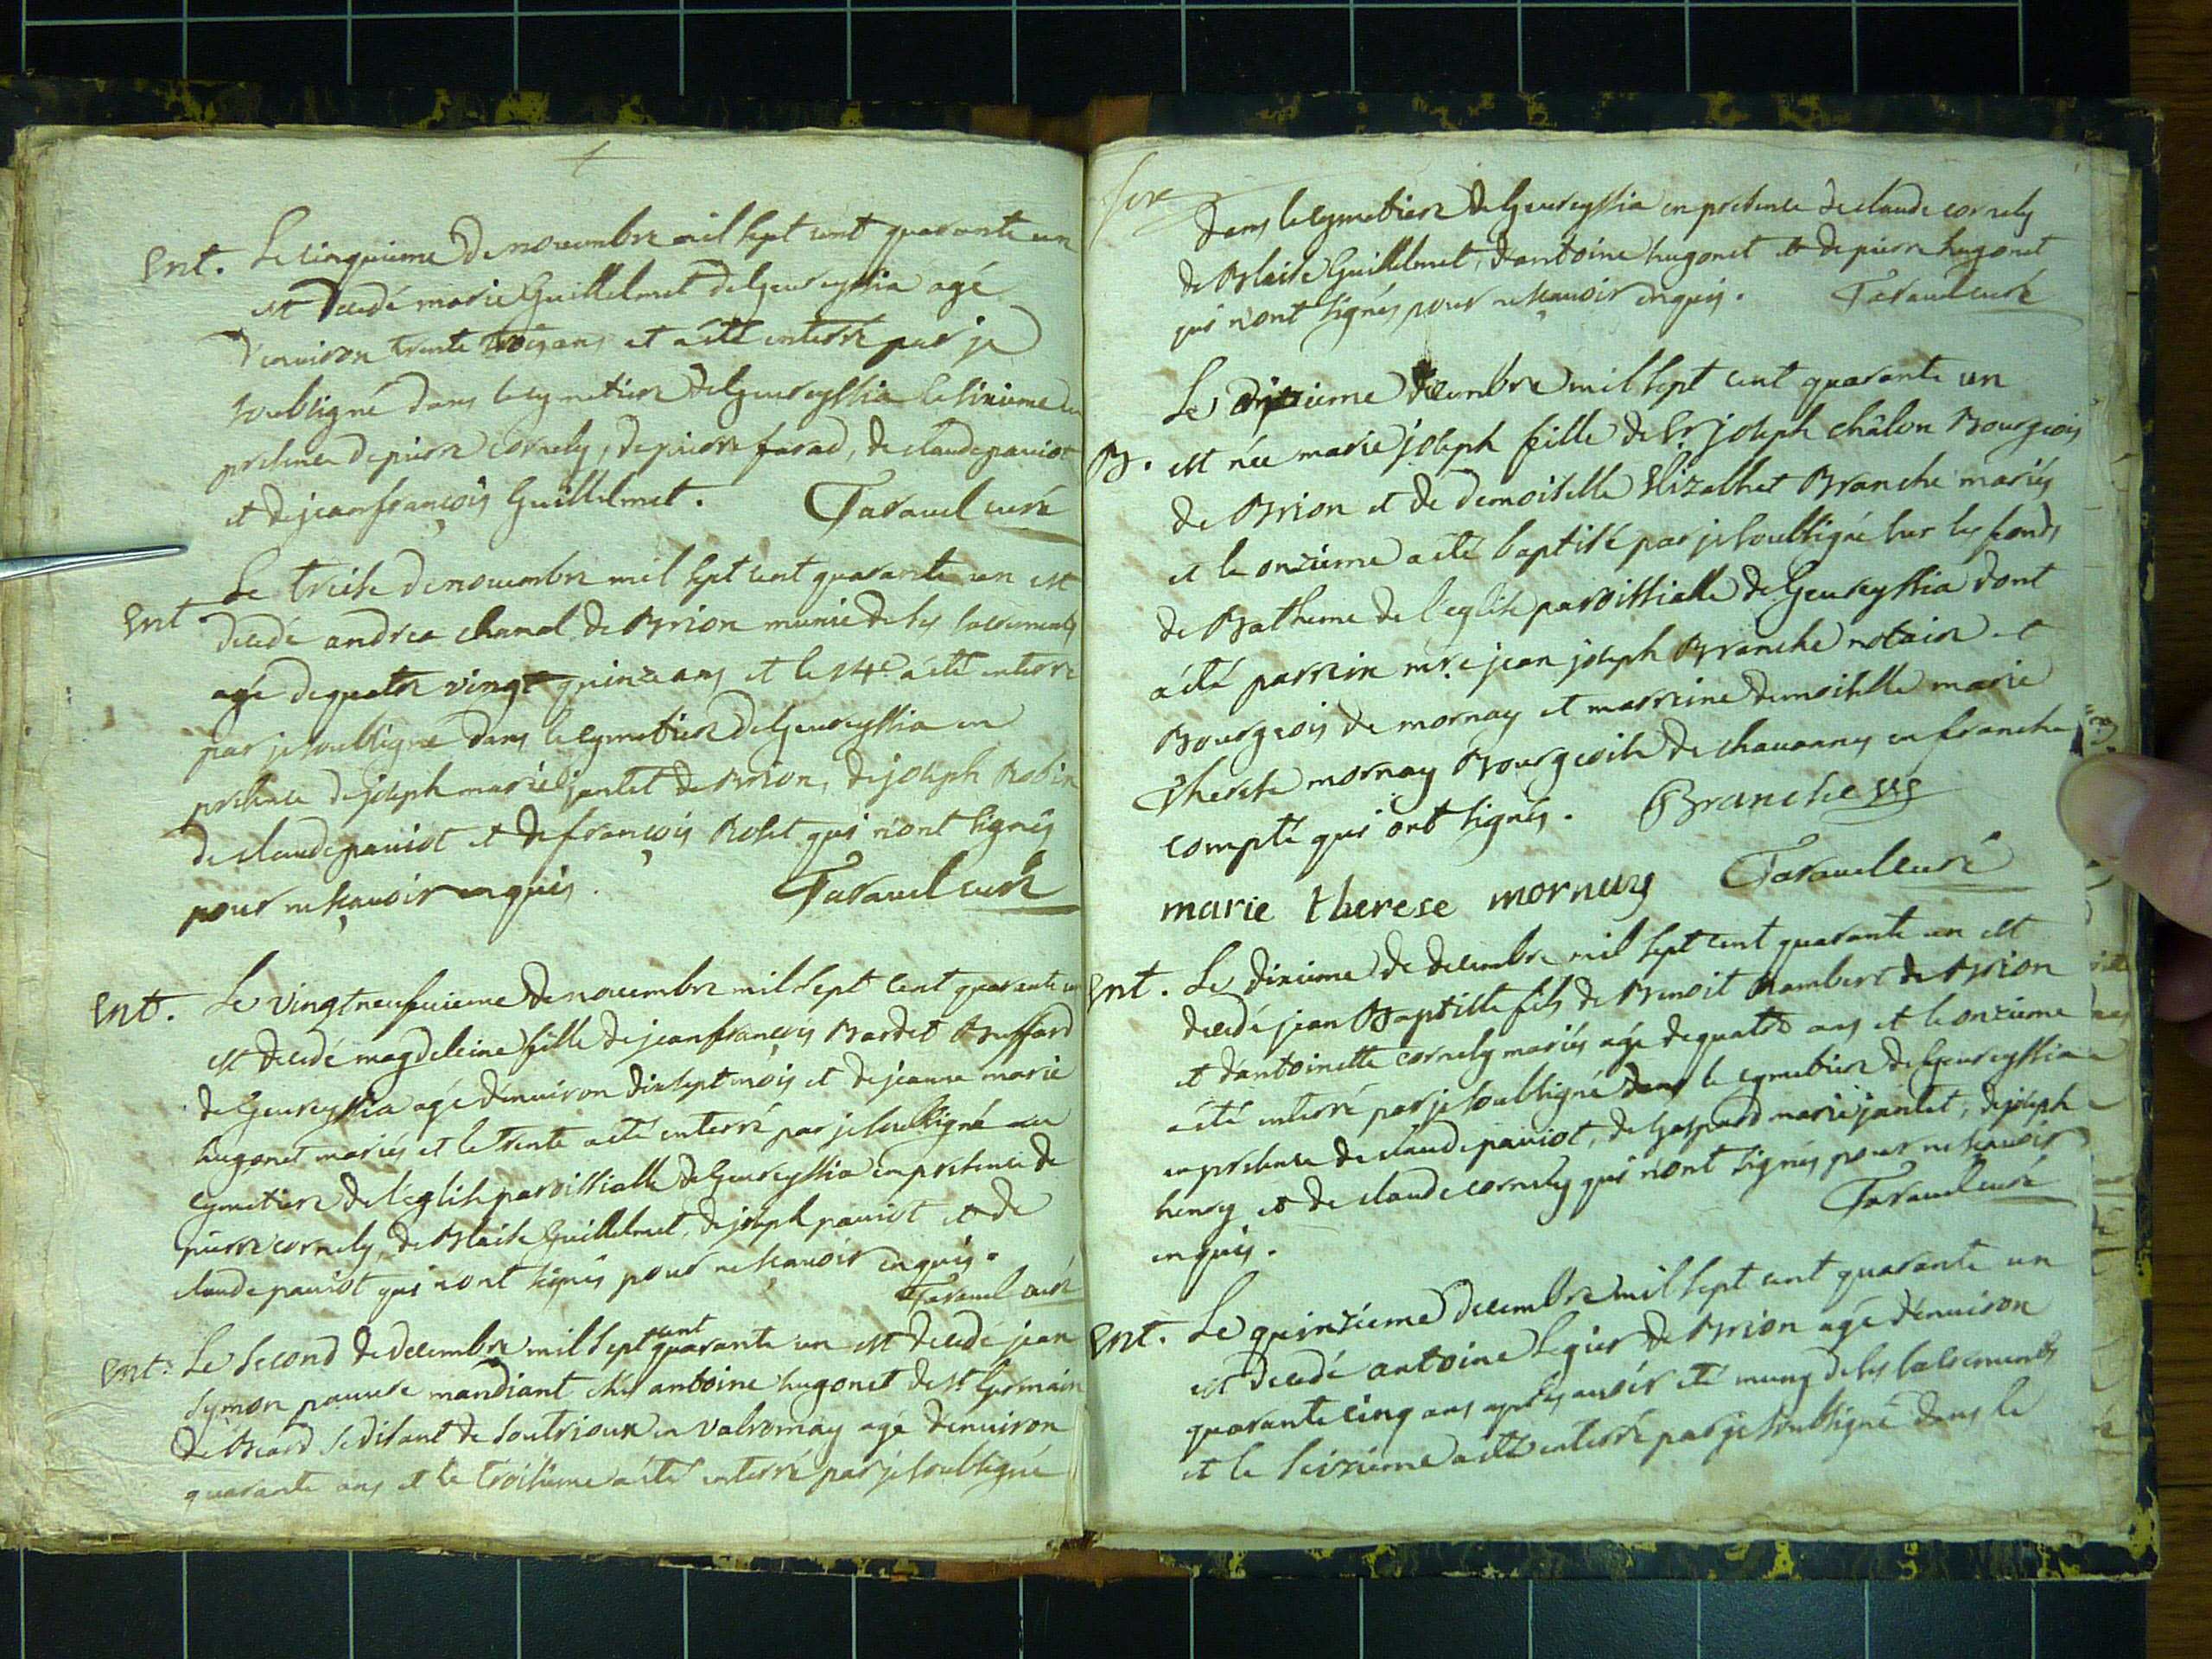 Ent. Le cinquieme de novembre mil sept cent quarante un
est decedé marie Guillelmet de Geureyssia agé
d'enuiron trente trois ans et a été enterré par je
soubsigné dans le cymetiere de Geureyssia le sixieme en
presence de pierre Cornely, de pierre farad, de claude pauiot
et de jean françois Guillelmet. Tavauel curé
Ent. Le treise de nouembre mil sept cent quarante un est
decedé andrea chanal de Brion munie de ses sacrements
agée de quatre vingt quinze ans et le 14e a été enterré
par je soubsigné dans le cymetiere de Geureyssia en
presence de joseph marie jantet de Brion, de joseph Robin
de claude pauiot et de françois Rolet qui n'ont signés
pour ne sçauoir enquis. Tavauel curé
Ent. Le vingt neufuieme de nouembre mil sept cent quarante un
est decedé magdeleine fille de jean françois Bardet Buffard
de Geureyssia agé d'enuiron dix sept mois et de jeanne marie
hugonet mariés et le trente a été enterré par je soubsigné au
cymetiere de l'eglise paroissialle de Geureyssia en presence de
pierre cornely, de Blaise Guillelmet, de joseph pauiot et de
claude pauiot qui n'ont signés pour ne sçauoir enquis.
Tavauel curé
Ent. Le second de decembre mil sept cent quarante un est decedé jean
symon pauure mandiant chés antoine hugonet de st Germain
de Beard se disant de soutrioux en valromay agé d'enuiron
quarante ans et le troisieme a été enterré par je soubsigné
dans le cymetiere de Geureyssia en presence de claude cornely
de Blaise Guillelmet, d'antoine hugonet et de pierre hugonet
qui n'ont signés pour ne sçauoir enquis. Tavauel curé
Le decembre mil sept cent quarante un
B. est née marie joseph fille de Sr joseph châlon Bourgeois
de Brion et de demoiselle Elizabhet Branche mariés
et le onzieme a été baptisé par je soubsigné sur les fonds
de Batheme de l'eglise paroissialle de Geureyssia dont
a été parrein mre jean joseph Branche notaire et
Bourgeois de mornay et marreine demoiselle marie
Therese mornay Bourgeoise de chauanny en franche
compté qui ont signés. Branche
marie therese mornay Tavauel curé
Ent. Le dixieme de decembre mil sept cent quarante un est
decedé jean Baptiste fils de Benoit Rambert de Brion
et d'antoinette cornely mariés agé de quatre ans et le onzieme
a été enterré par je soubsigné dans le cymetiere de Geureyssia
en presence de claude pauiot, de Gaspard marie jantet, de joseph
henry et de claude cornely qui n'ont signés pour ne sçauoir
enquis. Tavauel curé
Ent. Le quinzieme decembre mil sept cent quarante un
est decedé antoine Legier de Brion agé d'enuiron
quarante cinq ans apres auoir été muny de ses sacrements
et le seizieme a été enterré par je soubsigné dans le